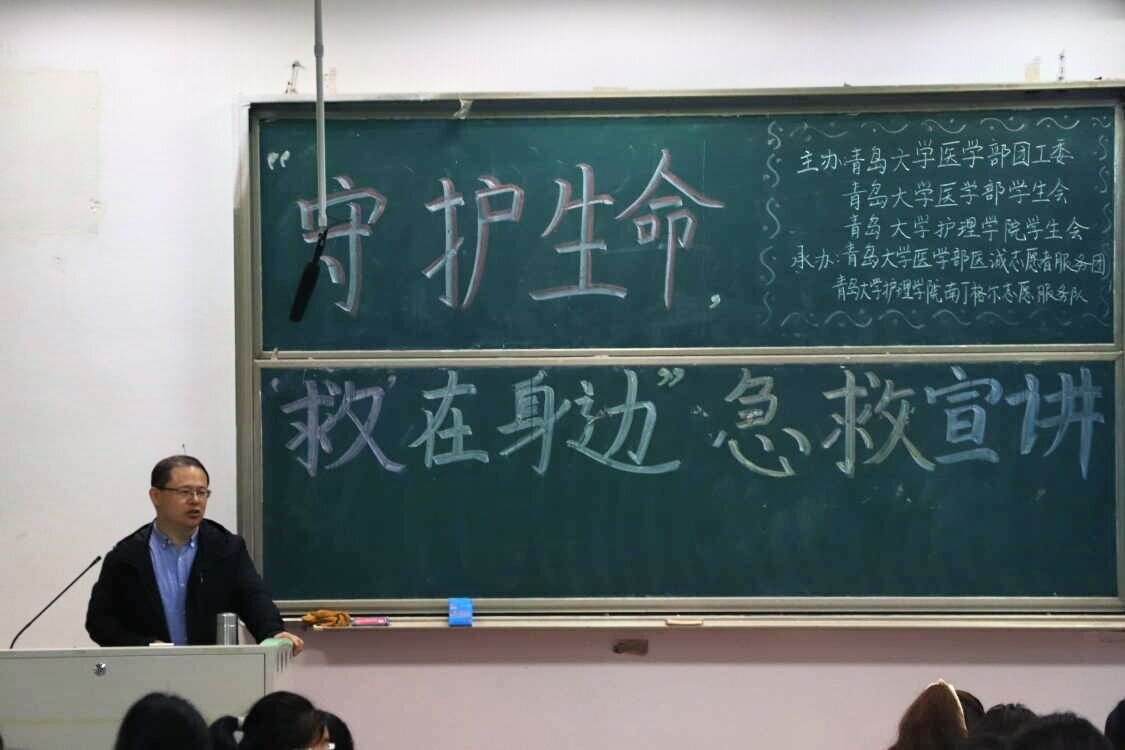 “守护生命，
‘救’在身边”急救宣讲
主办:青岛大学医学部团工委
青岛大学医学部学生会
青岛大学护理学院学生会
承办:青岛大学医学部医诚志愿者服务团
青岛大学护理学院南丁格尔志愿服务队